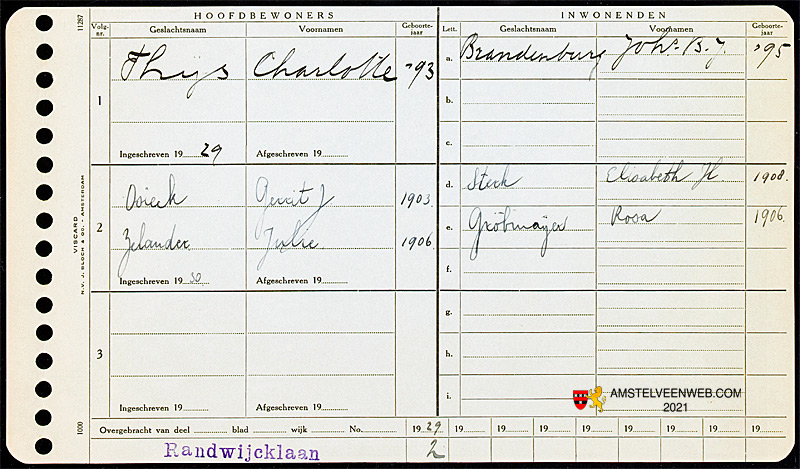 HOOFDBEWONERS
INWONENDEN
Volg-nr. Geslachtsnaam Voornamen Geboorte-jaar
Lett. Geslachtsnaam Voornamen Geboorte-jaar
11287
1 Thijs Charlotte '93
Ingeschreven 19 29 Afgeschreven 19
a. Brandenburg Johs. B. J. '95
b.
c.
2 Gerrit J 1903.
Zelander Julie 1906.
Ingeschreven 19 30 Afgeschreven 19
d. Sterk Elisabeth H. 1908.
e. Gröbmayer Rosa 1906.
f.
3
Ingeschreven 19 Afgeschreven 19
g.
h.
i.
VISCARD
N.V. J. BLOCH & CO. - AMSTERDAM
1000
AMSTELVEENWEB.COM
2021
Overgebracht van deel blad wijk No. 19 29 19 19 19 19 19 19 19 19
Randwijcklaan 2